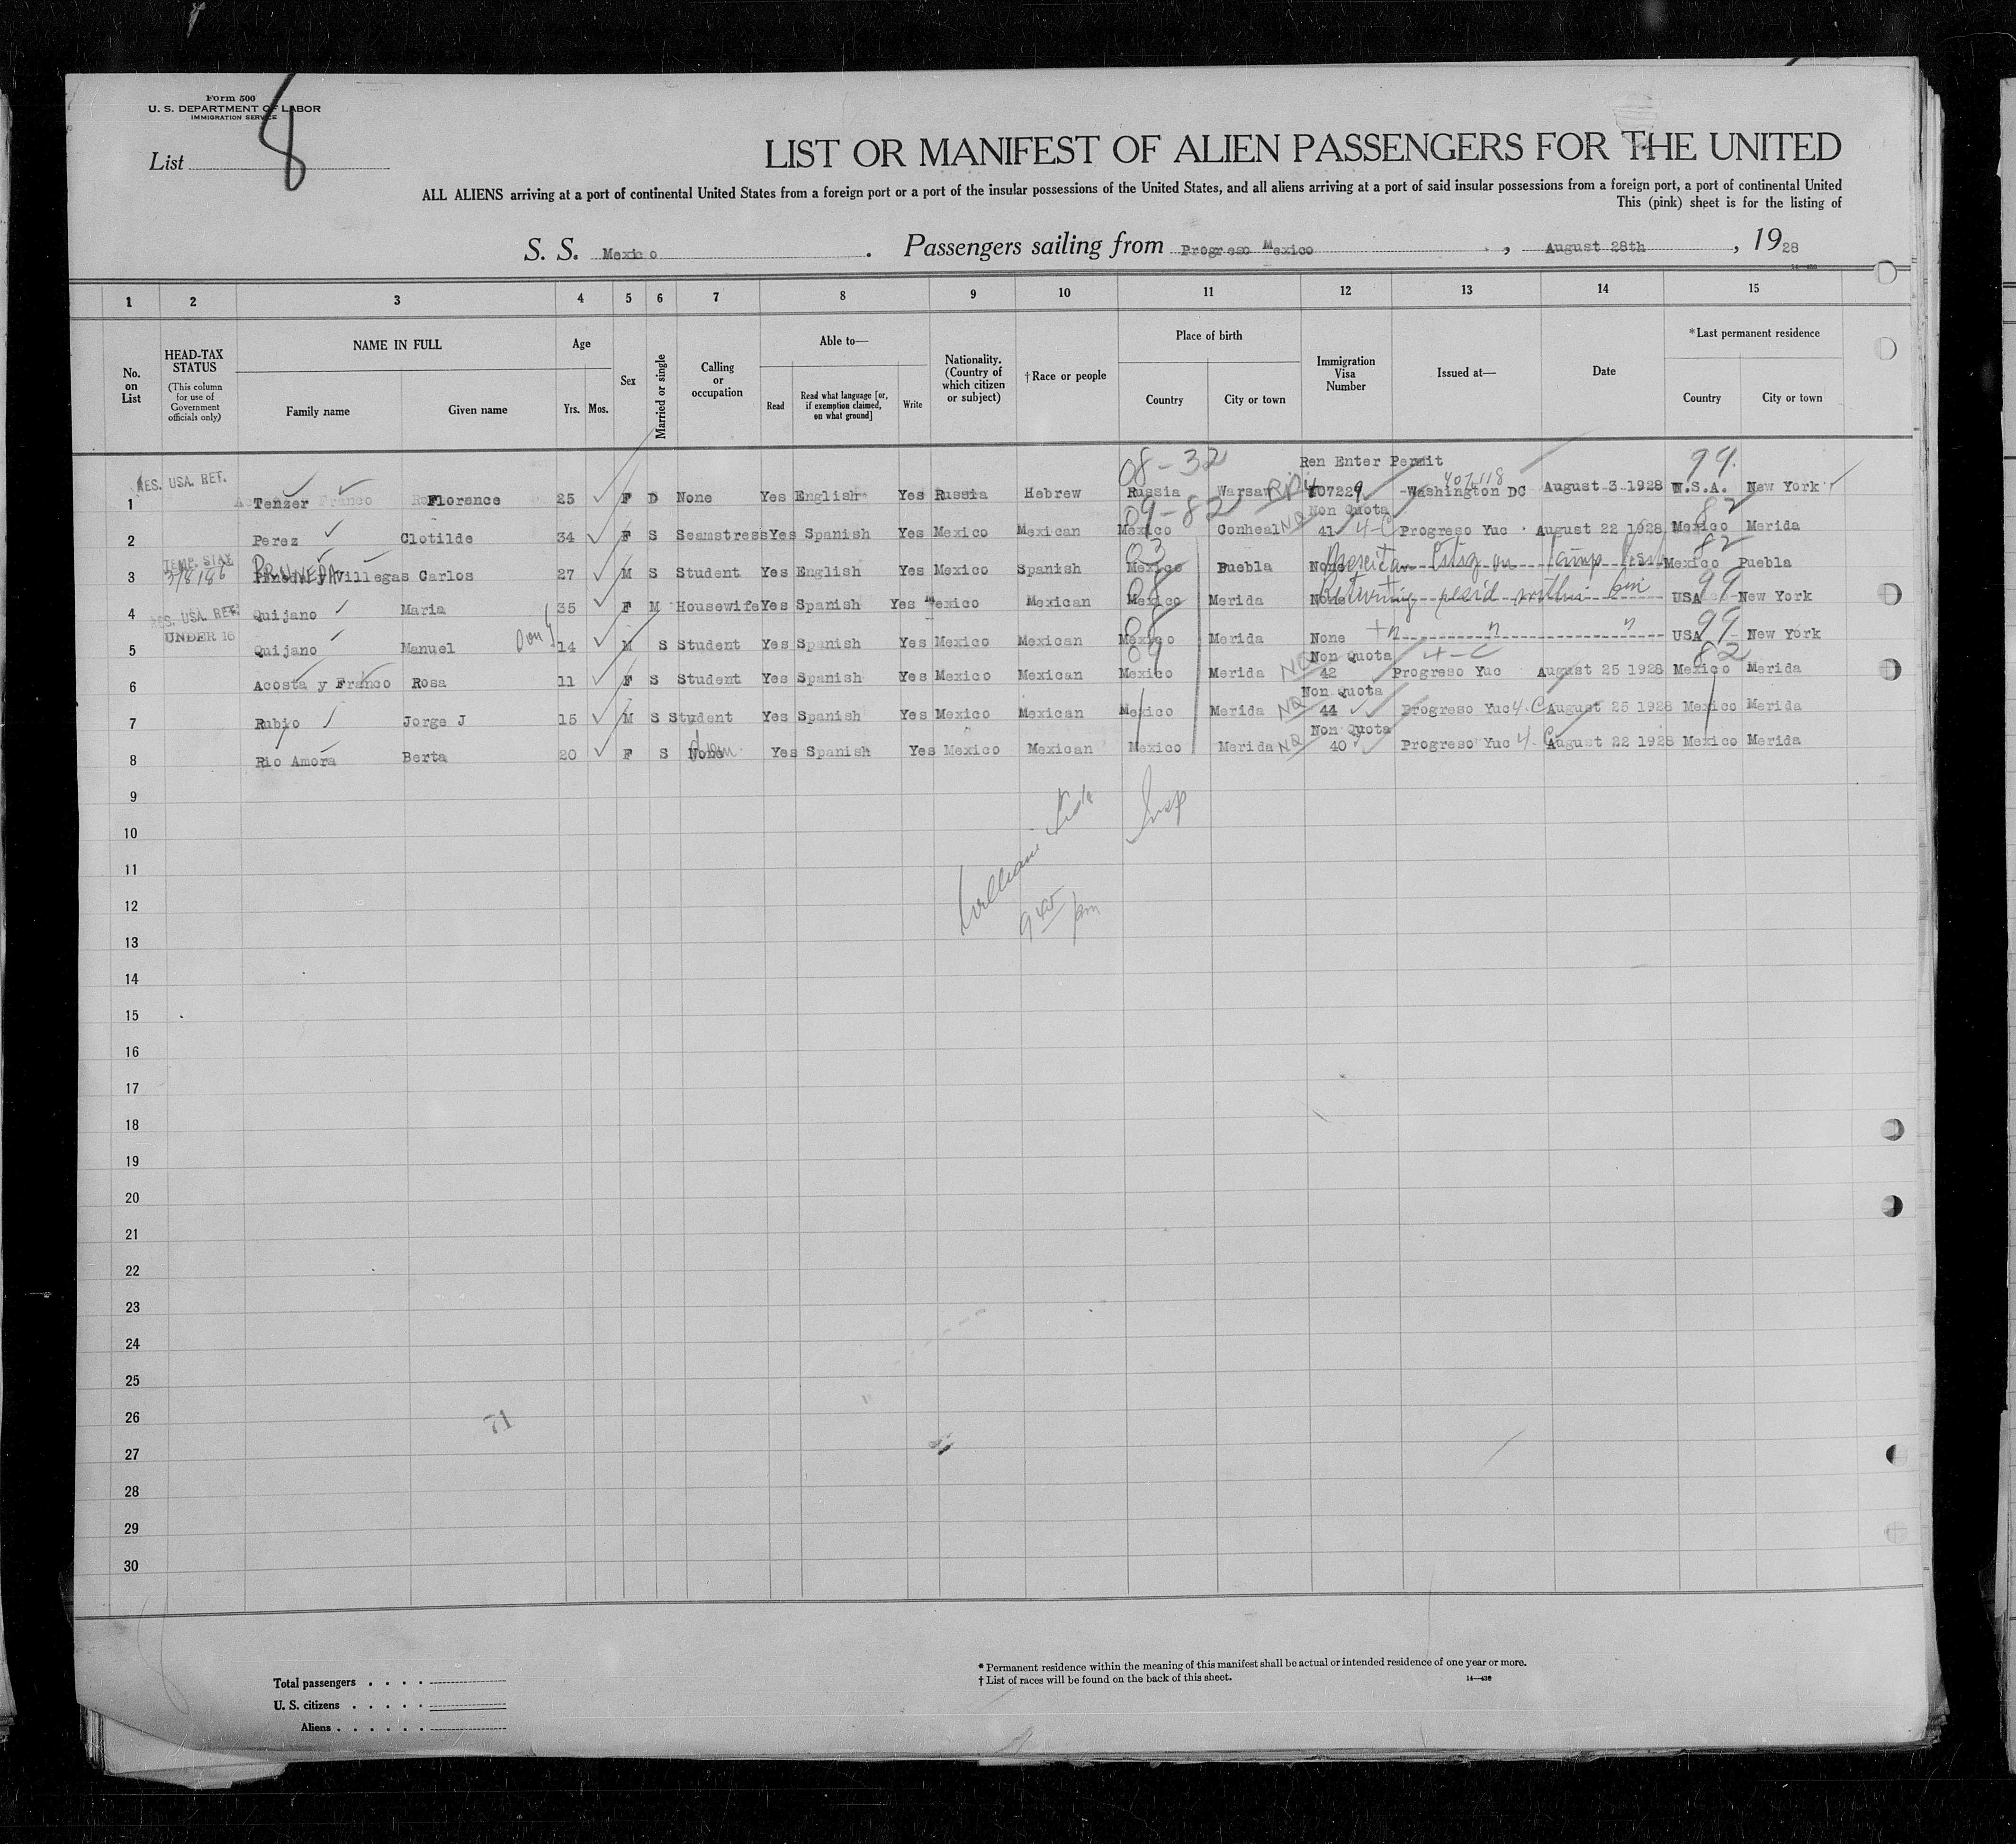 Form 500
U. S. DEPARTMENT OF LABOR
IMMIGRATION SERVICE
List 8
LIST OR MANIFEST OF ALIEN PASSENGERS FOR THE UNITED
ALL ALIENS arriving at a port of continental United States from a foreign port or a port of the insular possessions of the United States, and all aliens arriving at a port of said insular possessions from a foreign port, a port of continental United
This (pink) sheet is for the listing of
S. S. Mexico . Passengers sailing from Progreso Mexico , August 28th , 1928
1 2 3 4 5 6 7 8 9 10 11 12 13 14 15
No. on List
HEAD-TAX STATUS (This column for use of Government officials only)
NAME IN FULL Family name Given name
Age Yrs. Mos.
Sex
Married or single
Calling or occupation
Able to— Read Read what language [or, if exemption claimed, on what ground] Write
Nationality. (Country of which citizen or subject)
†Race or people
Place of birth Country City or town
Immigration Visa Number
Issued at—
Date
*Last permanent residence Country City or town
08-32 Ren Enter Permit 99
RES. USA. RET. 407118
1 Tenzer Florence 25 F D None Yes English Yes Russia Hebrew Russia Warsaw 107229 Washington DC August 3 1928 U.S.A. New York
09-82 Non Quota 82
2 Perez Clotilde 34 F S Seamstress Yes Spanish Yes Mexico Mexican Mexico Conheal NQ 41 4-C Progreso Yuc August 22 1928 Mexico Merida
TEMP. STAY 03 82
3 Villegas Carlos 27 M S Student Yes English Yes Mexico Spanish Mexico Puebla None Mexico Puebla
08 Returning 6m 99
4 RES. USA. RET. Quijano Maria 35 F M Housewife Yes Spanish Yes Mexico Mexican Mexico Merida None USA New York
UNDER 16 99
5 Quijano Manuel 14 M S Student Yes Spanish Yes Mexico Mexican Mexico Merida None " " " USA New York
09 Non Quota 4-C 82
6 Acosta y Franco Rosa 11 F S Student Yes Spanish Yes Mexico Mexican Mexico Merida NQ 42 Progreso Yuc August 25 1928 Mexico Merida
Non quota
7 Rubio Jorge J 15 M S Student Yes Spanish Yes Mexico Mexican Mexico Merida NQ 44 Progreso Yuc 4.C August 25 1928 Mexico Merida
Non Quota
8 Rio Amora Berta 20 F S None Yes Spanish Yes Mexico Mexican Mexico Merida NQ 40 Progreso Yuc 4.C August 22 1928 Mexico Merida
9
10
11
William Insp
12
9 40 pm
13
14
15
16
17
18
19
20
21
22
23
24
25
26
71
27
28
29
30
* Permanent residence within the meaning of this manifest shall be actual or intended residence of one year or more.
† List of races will be found on the back of this sheet.
14—438
Total passengers . . . .
U. S. citizens . . . . .
Aliens . . . . . .